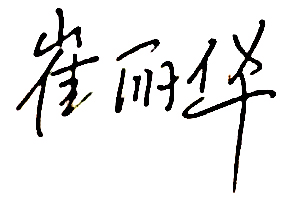 崔丽华